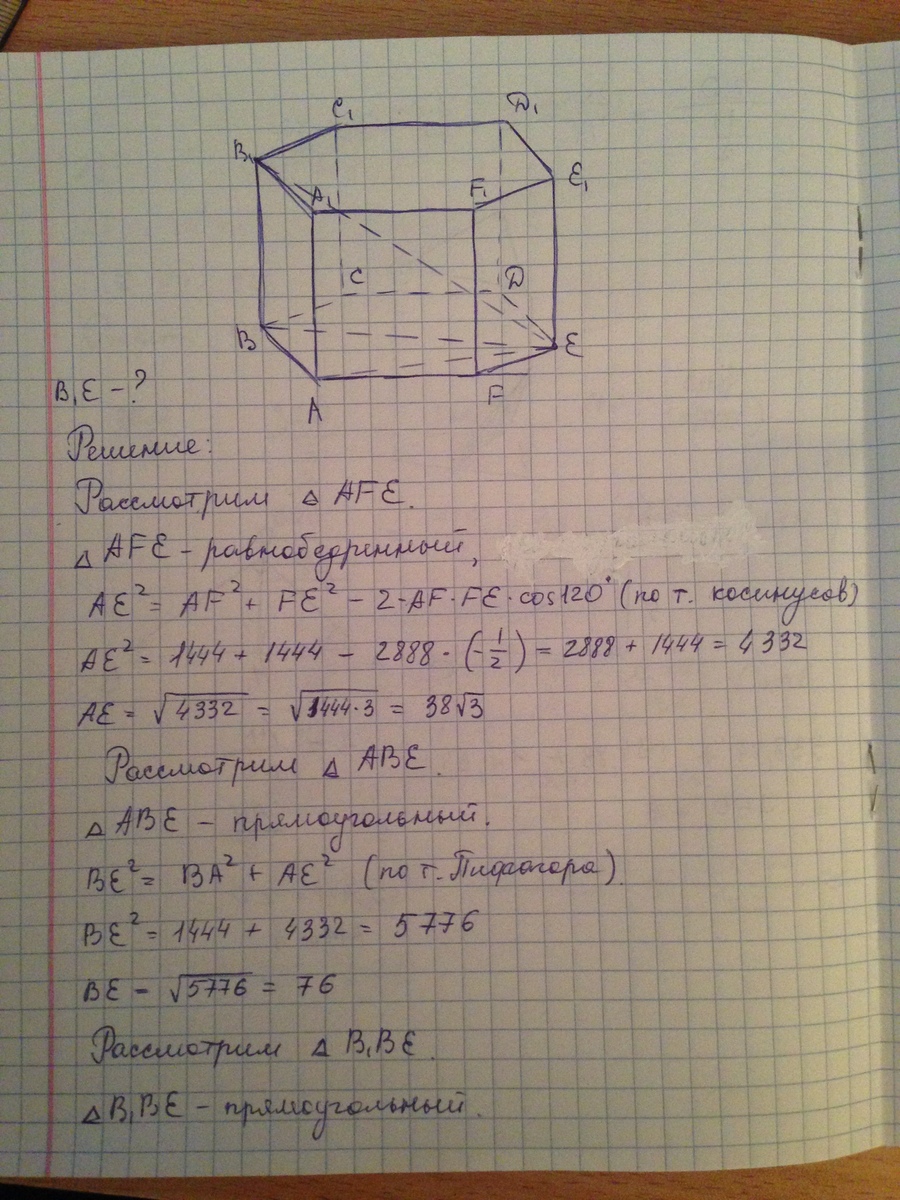 C₁ D₁
B₁ A₁ F₁ E₁
C D
B E
A F
B₁E - ?
Решение:
Рассмотрим △ AFE.
△ AFE - равнобедренный,
AE² = AF² + FE² - 2·AF·FE·cos120° (по т. косинусов)
AE² = 1444 + 1444 - 2888·(-1/2) = 2888 + 1444 = 4332
AE = √4332 = √1444·3 = 38√3
Рассмотрим △ ABE.
△ ABE - прямоугольный.
BE² = BA² + AE² (по т. Пифагора)
BE² = 1444 + 4332 = 5776
BE - √5776 = 76
Рассмотрим △ B₁BE.
△ B₁BE - прямоугольный.